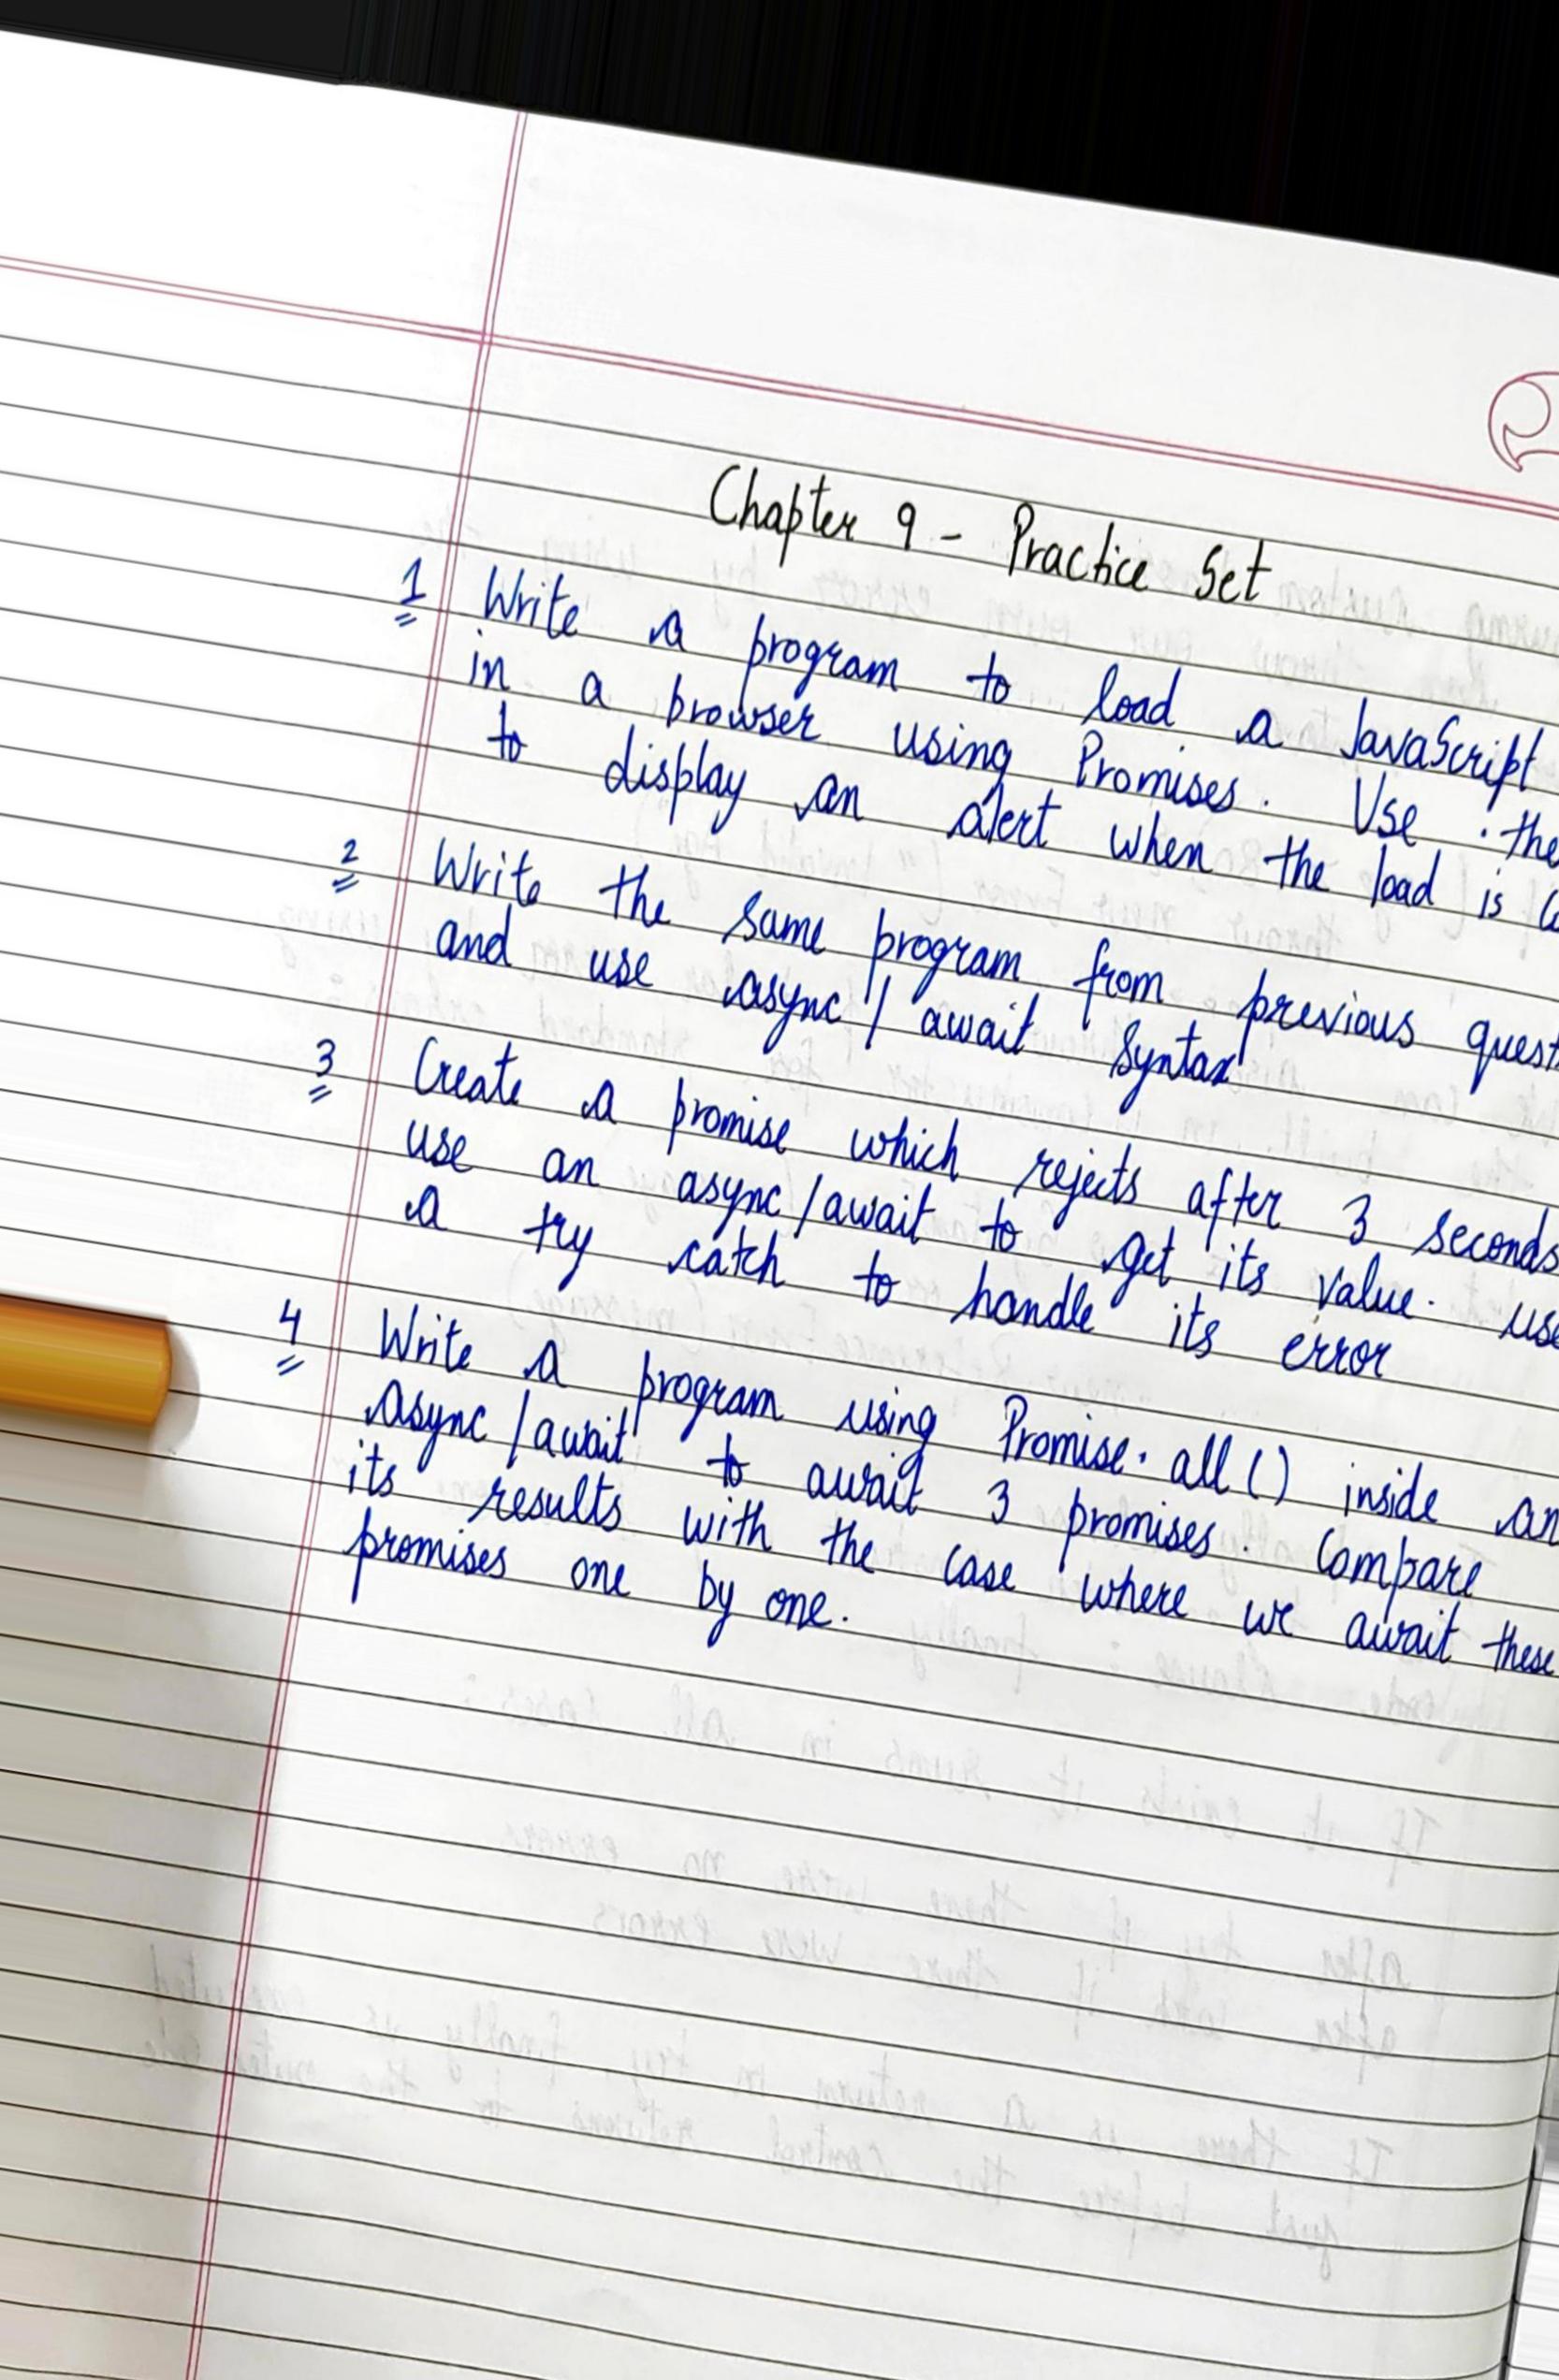 Chapter 9 - Practice Set
1 Write a program to load a JavaScript
in a browser using Promises. Use .the
to display an alert when the load is
2 Write the same program from previous quest
and use async / await Syntax
3 Create a promise which rejects after 3 seconds
use an async / await to get its value. use
a try catch to handle its error
4 Write a program using Promise.all() inside an
async / await to await 3 promises. Compare
its results with the case where we await these
promises one by one.